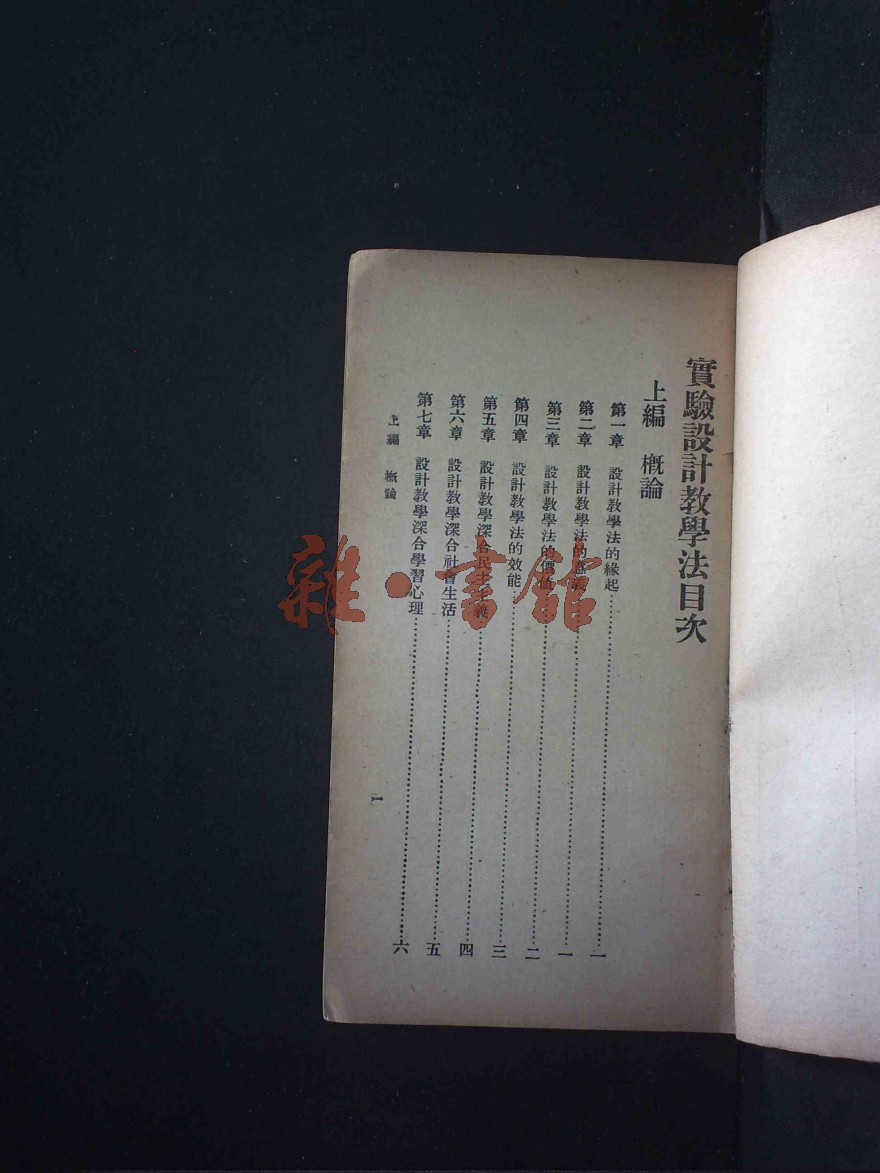 實驗設計教學法目次
上編 概論
第一章 設計教學法的緣起……一
第二章 設計教學法的意義……一
第三章 設計教學法的價值……二
第四章 設計教學法的效能……三
第五章 設計教學深合民主主義……四
第六章 設計教學深合社會生活……五
第七章 設計教學深合學習心理……六
上編 概論
一
雜·書館